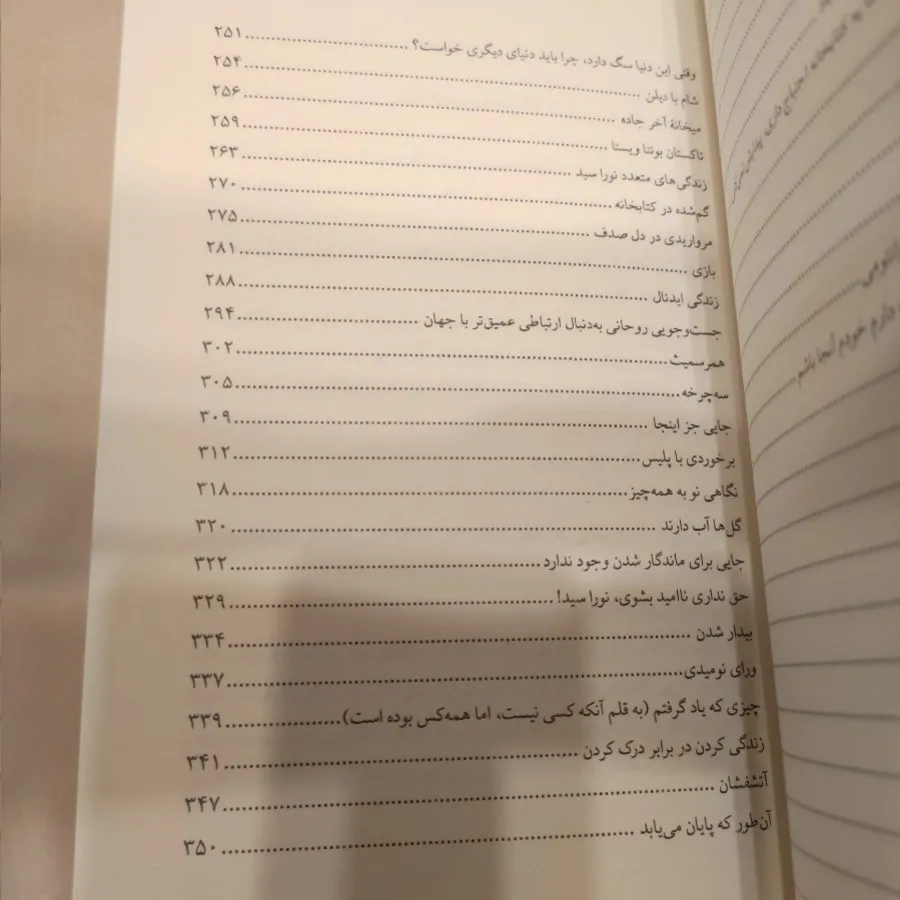 وقتی این دنیا سگ دارد، چرا باید دنیای دیگری خواست؟ ........ ۲۵۱
شام با دیلن ........ ۲۵۴
میخانهٔ آخر جاده ........ ۲۵۶
تاکستان بوئنا ویستا ........ ۲۵۹
زندگی‌های متعدد نورا سید ........ ۲۶۳
گم‌شده در کتابخانه ........ ۲۷۰
مرواریدی در دل صدف ........ ۲۷۵
بازی ........ ۲۸۱
زندگی ایدئال ........ ۲۸۸
جست‌وجویی روحانی به‌دنبال ارتباطی عمیق‌تر با جهان ........ ۲۹۴
همرسمیث ........ ۳۰۲
سه‌چرخه ........ ۳۰۵
جایی جز اینجا ........ ۳۰۹
برخوردی با پلیس ........ ۳۱۲
نگاهی نو به همه‌چیز ........ ۳۱۸
گل‌ها آب دارند ........ ۳۲۰
جایی برای ماندگار شدن وجود ندارد ........ ۳۲۲
حق نداری ناامید بشوی، نورا سید! ........ ۳۲۹
بیدار شدن ........ ۳۳۴
ورای نومیدی ........ ۳۳۷
چیزی که یاد گرفتم (به قلم آنکه کسی نیست، اما همه‌کس بوده است) ........ ۳۳۹
زندگی کردن در برابر درک کردن ........ ۳۴۱
آتشفشان ........ ۳۴۷
آن‌طور که پایان می‌یابد ........ ۳۵۰
دارم خودم آنجا باشم